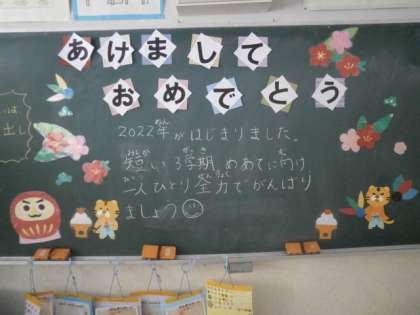 あけまして
おめでとう
2022年がはじまりました。
短い3学期 めあてに向け
一人ひとり全力でがんばり
ましょう
は
出し